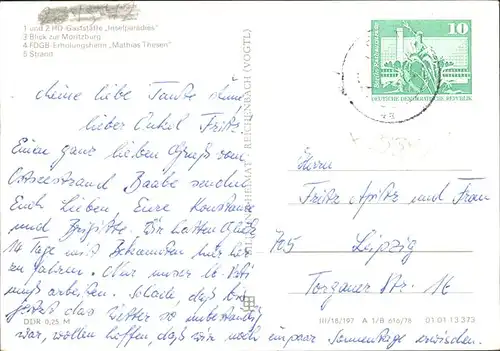 1 und 2 HO-Gaststätte „Inselparadies"
3 Blick zur Moritzburg
4 FDGB-Erholungsheim „Mathias Thesen"
5 Strand
10
DEUTSCHE DEMOKRATISCHE REPUBLIK
REICHENBACH (VOGTL)
Meine liebe Tante
lieber Onkel Fritz
Einen ganz lieben Gruß vom
Ostseestrand Baabe senden
Euch Lieben Eure Konstanze
und Brigitte. Wir hatten Glück
14 Tage mit Bekannten
zu fahren. Nur unser
muß arbeiten. Schade, daß bis
jetzt das Wetter so unbeständig
war, wollen hoffen, daß wir noch ein paar Sonnentage erwischen.
Herrn
Fritz und Frau
705 Leipzig
Torgauer Str. 16
DDR 0,25 M
III/18/197 A 1/B 610/76 01 01 13 373